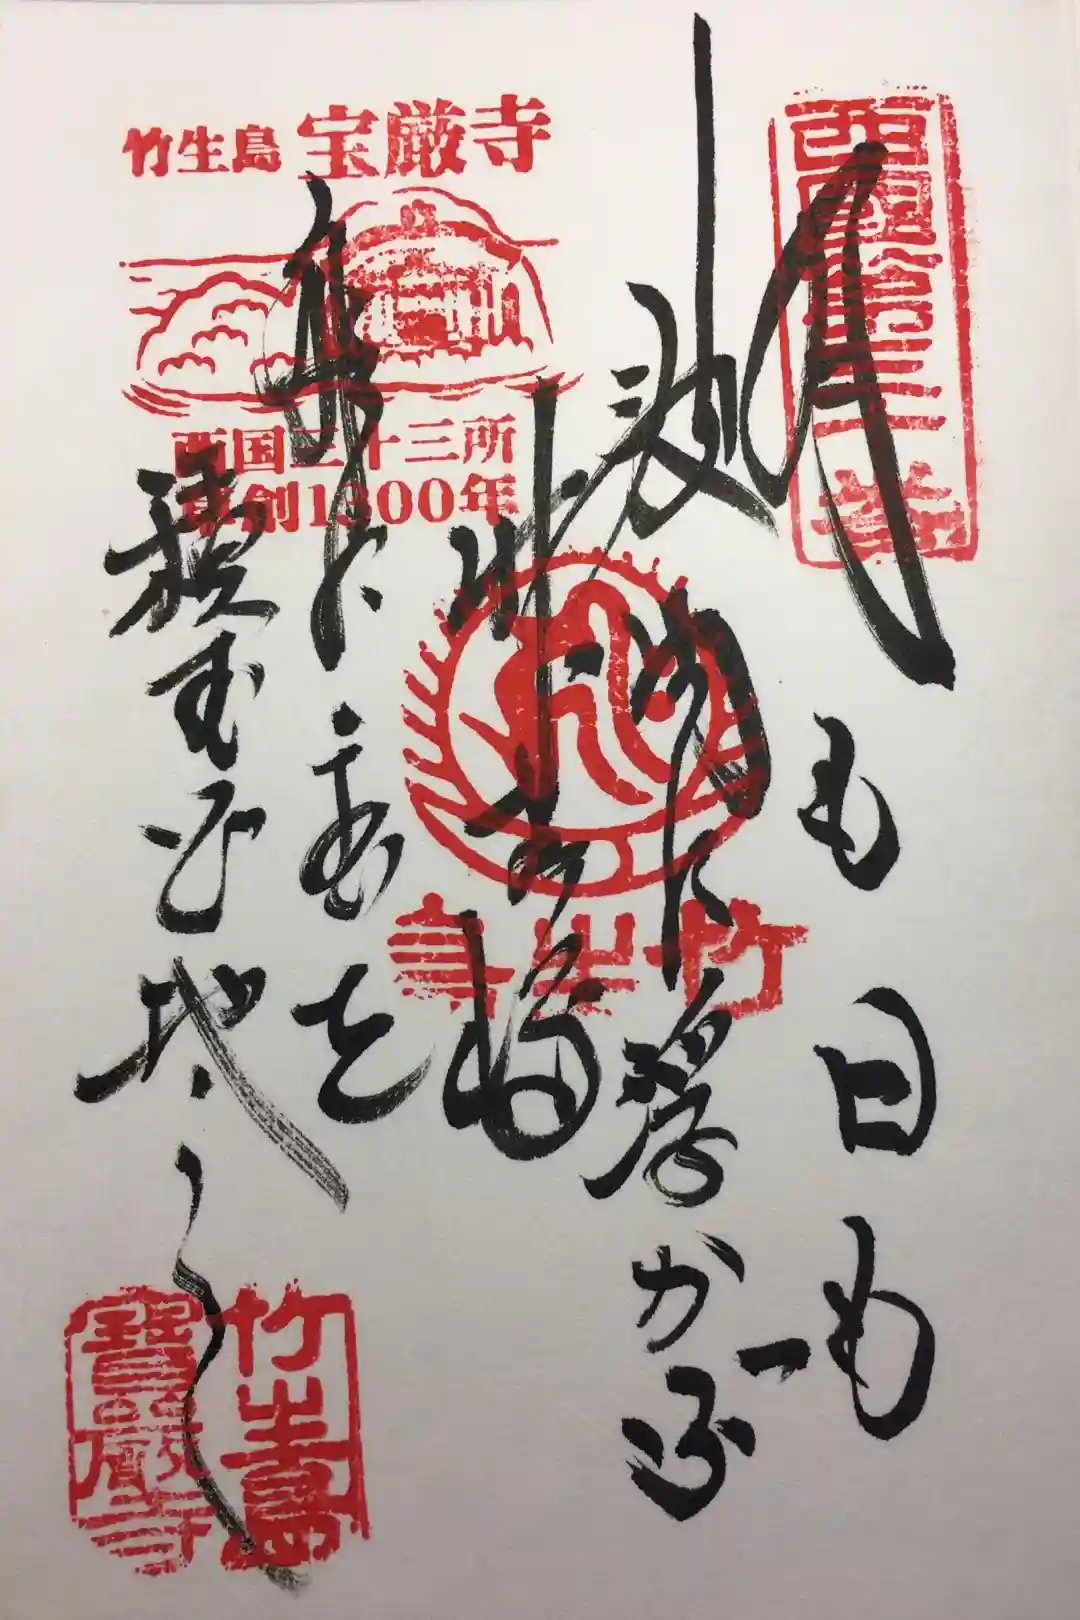 西国第三十番
月も日も
波間に浮かふ
竹生嶋
舟に宝を
積む心地して
竹生島 宝厳寺
西国三十三所
草創1300年
竹生島
竹生島
寶嚴寺